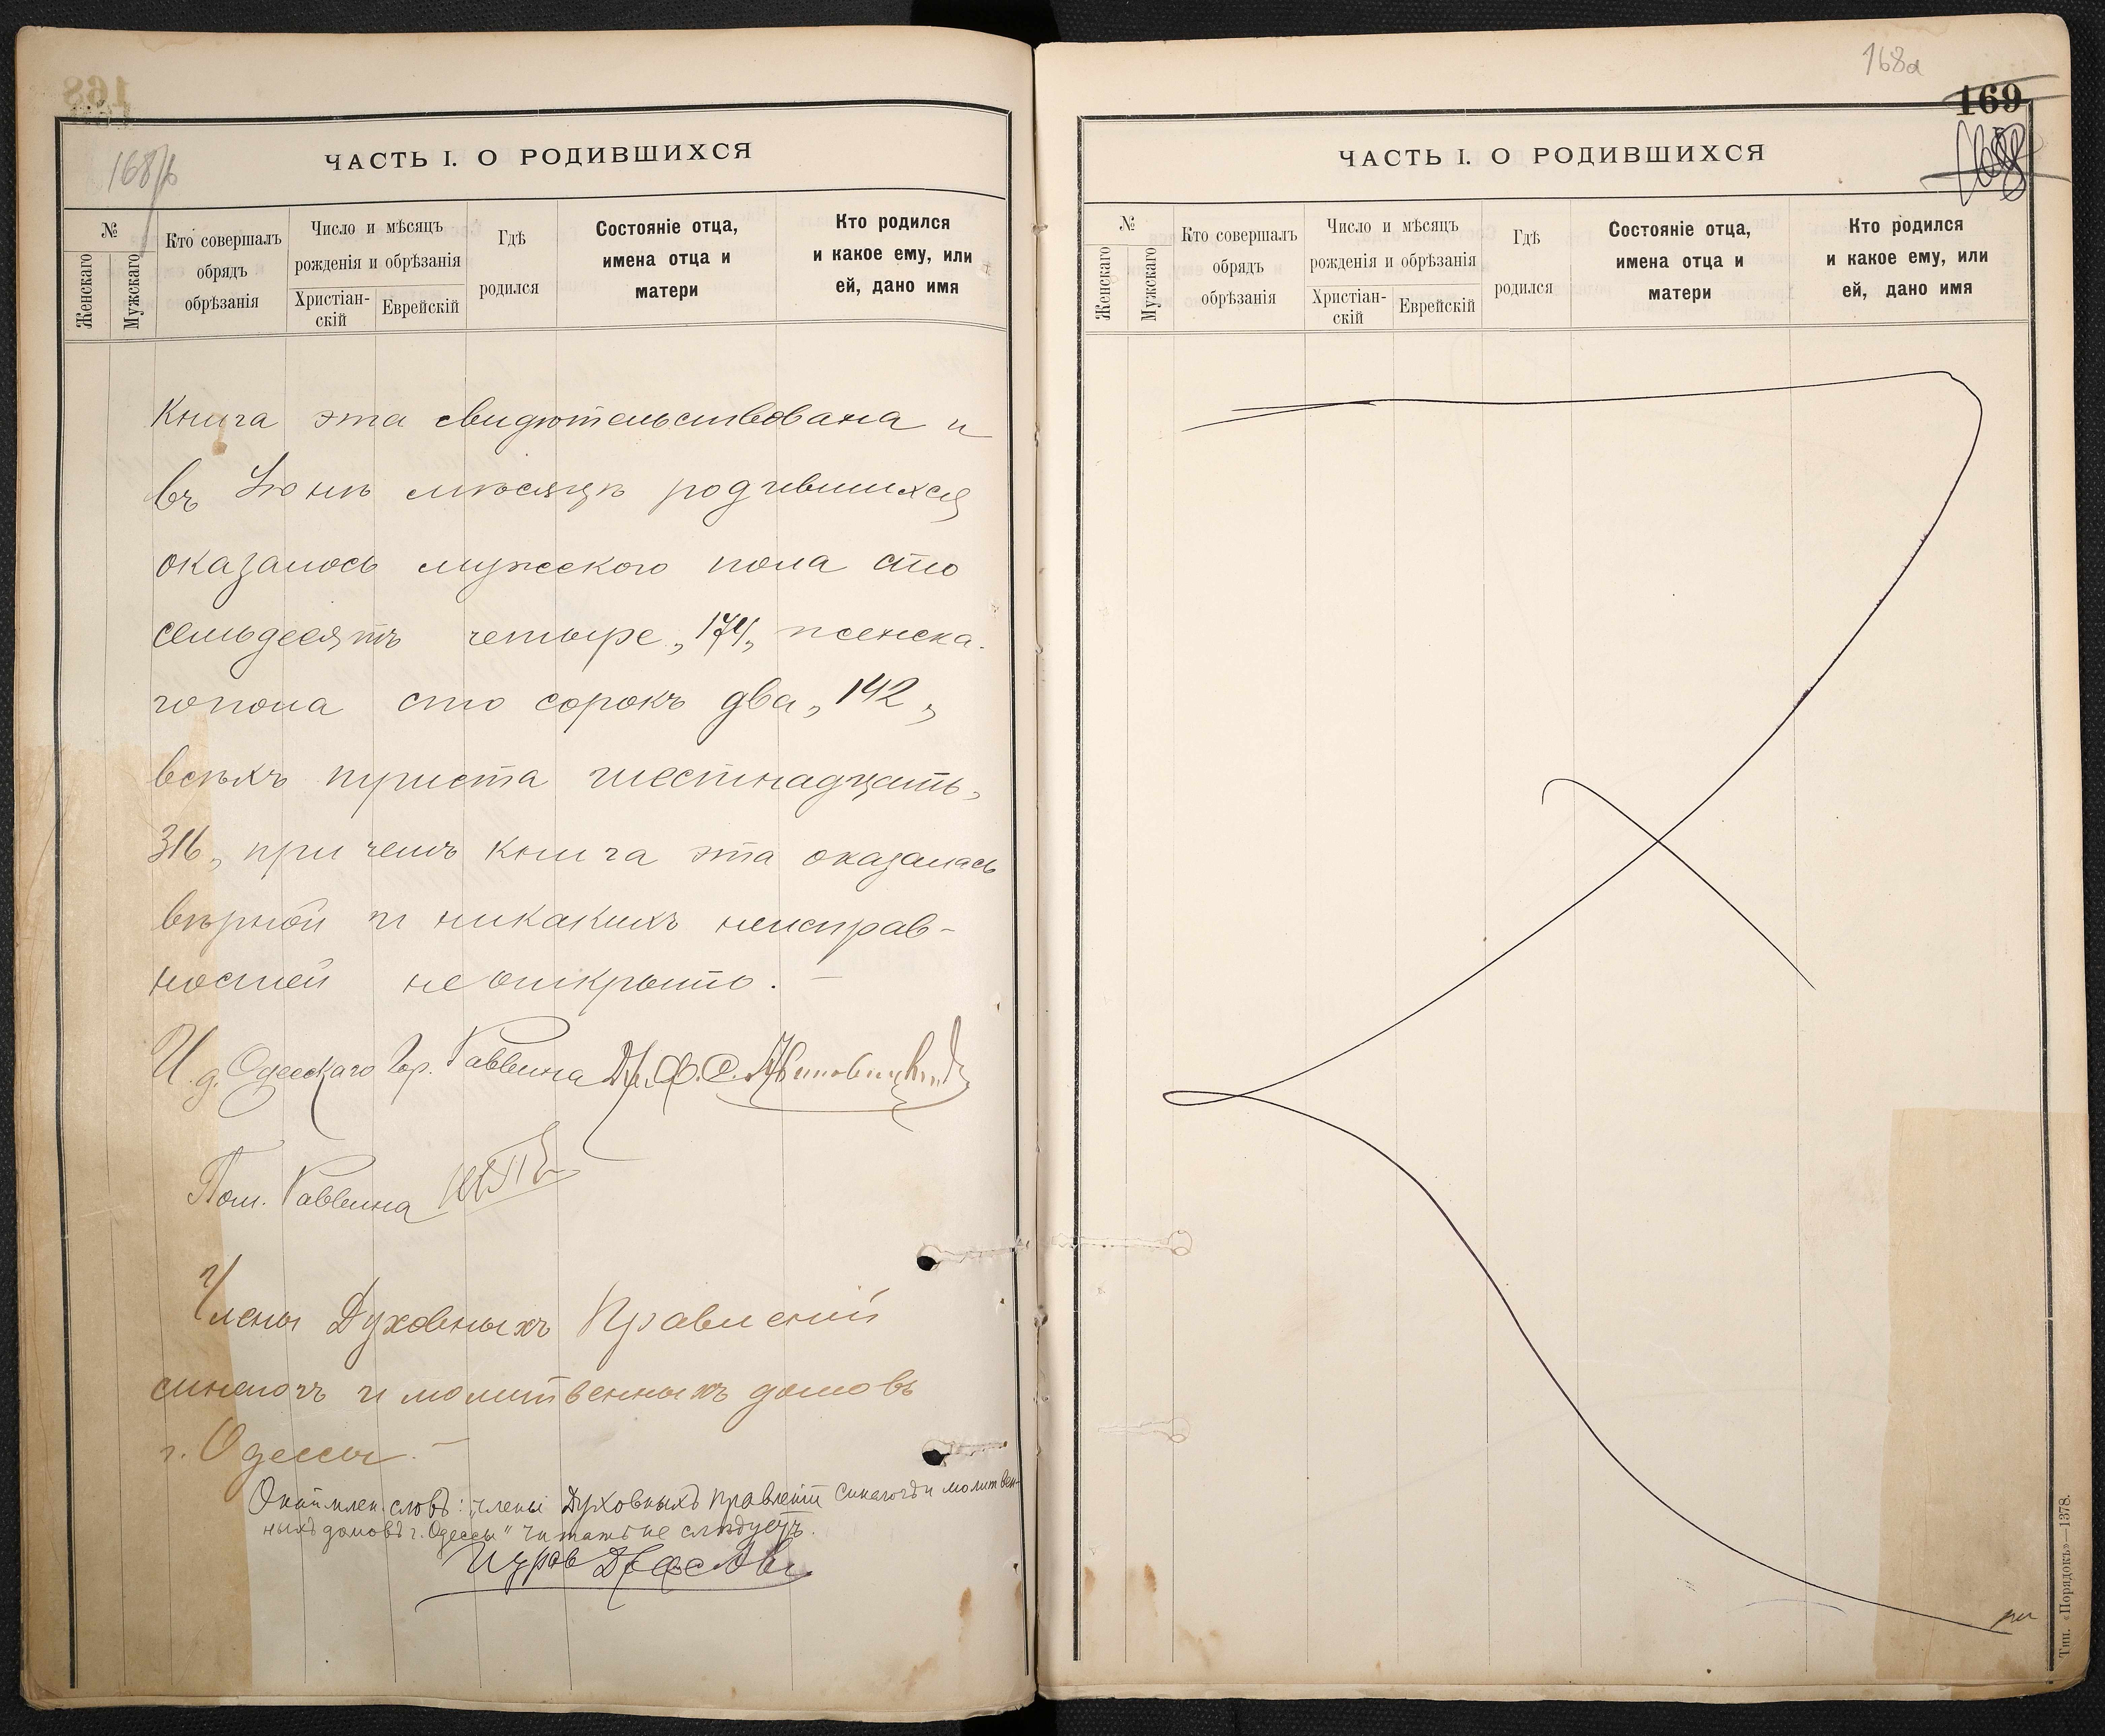 168
168/б
ЧАСТЬ I. О РОДИВШИХСЯ
№
Женскаго
Мужскаго
Кто совершалъ
обрядъ
обрѣзанія
Число и мѣсяцъ
рожденія и обрѣзанія
Христіан-
скій
Еврейскій
Гдѣ
родился
Состояніе отца,
имена отца и
матери
Кто родился
и какое ему, или
ей, дано имя
Книга эта свидѣтельствована и
въ Іюнѣ мѣсяцѣ родившихся
оказалось мужеского пола сто
семьдесятъ четыре „174„ женска-
го пола сто сорокъ два „142„
всѣхъ триста шестнадцать„
316„ при чемъ книга эта оказалась
вѣрной и никакихъ неисправ-
ностей не открыто. —
И. д. Одесскаго Гор. Раввина
Пом. Раввина
Члены Духовныхъ Правленій
синагогъ и молитвенныхъ домовъ
г. Одессы. —
слов: „члены Духовныхъ правленій синагогъ и молитвен-
ныхъ домовъ г. Одессы" читать не слѣдуетъ.
168а
169
ЧАСТЬ I. О РОДИВШИХСЯ
№
Женскаго
Мужскаго
Кто совершалъ
обрядъ
обрѣзанія
Число и мѣсяцъ
рожденія и обрѣзанія
Христіан-
скій
Еврейскій
Гдѣ
родился
Состояніе отца,
имена отца и
матери
Кто родился
и какое ему, или
ей, дано имя
Тип. «Порядокъ»—1378.